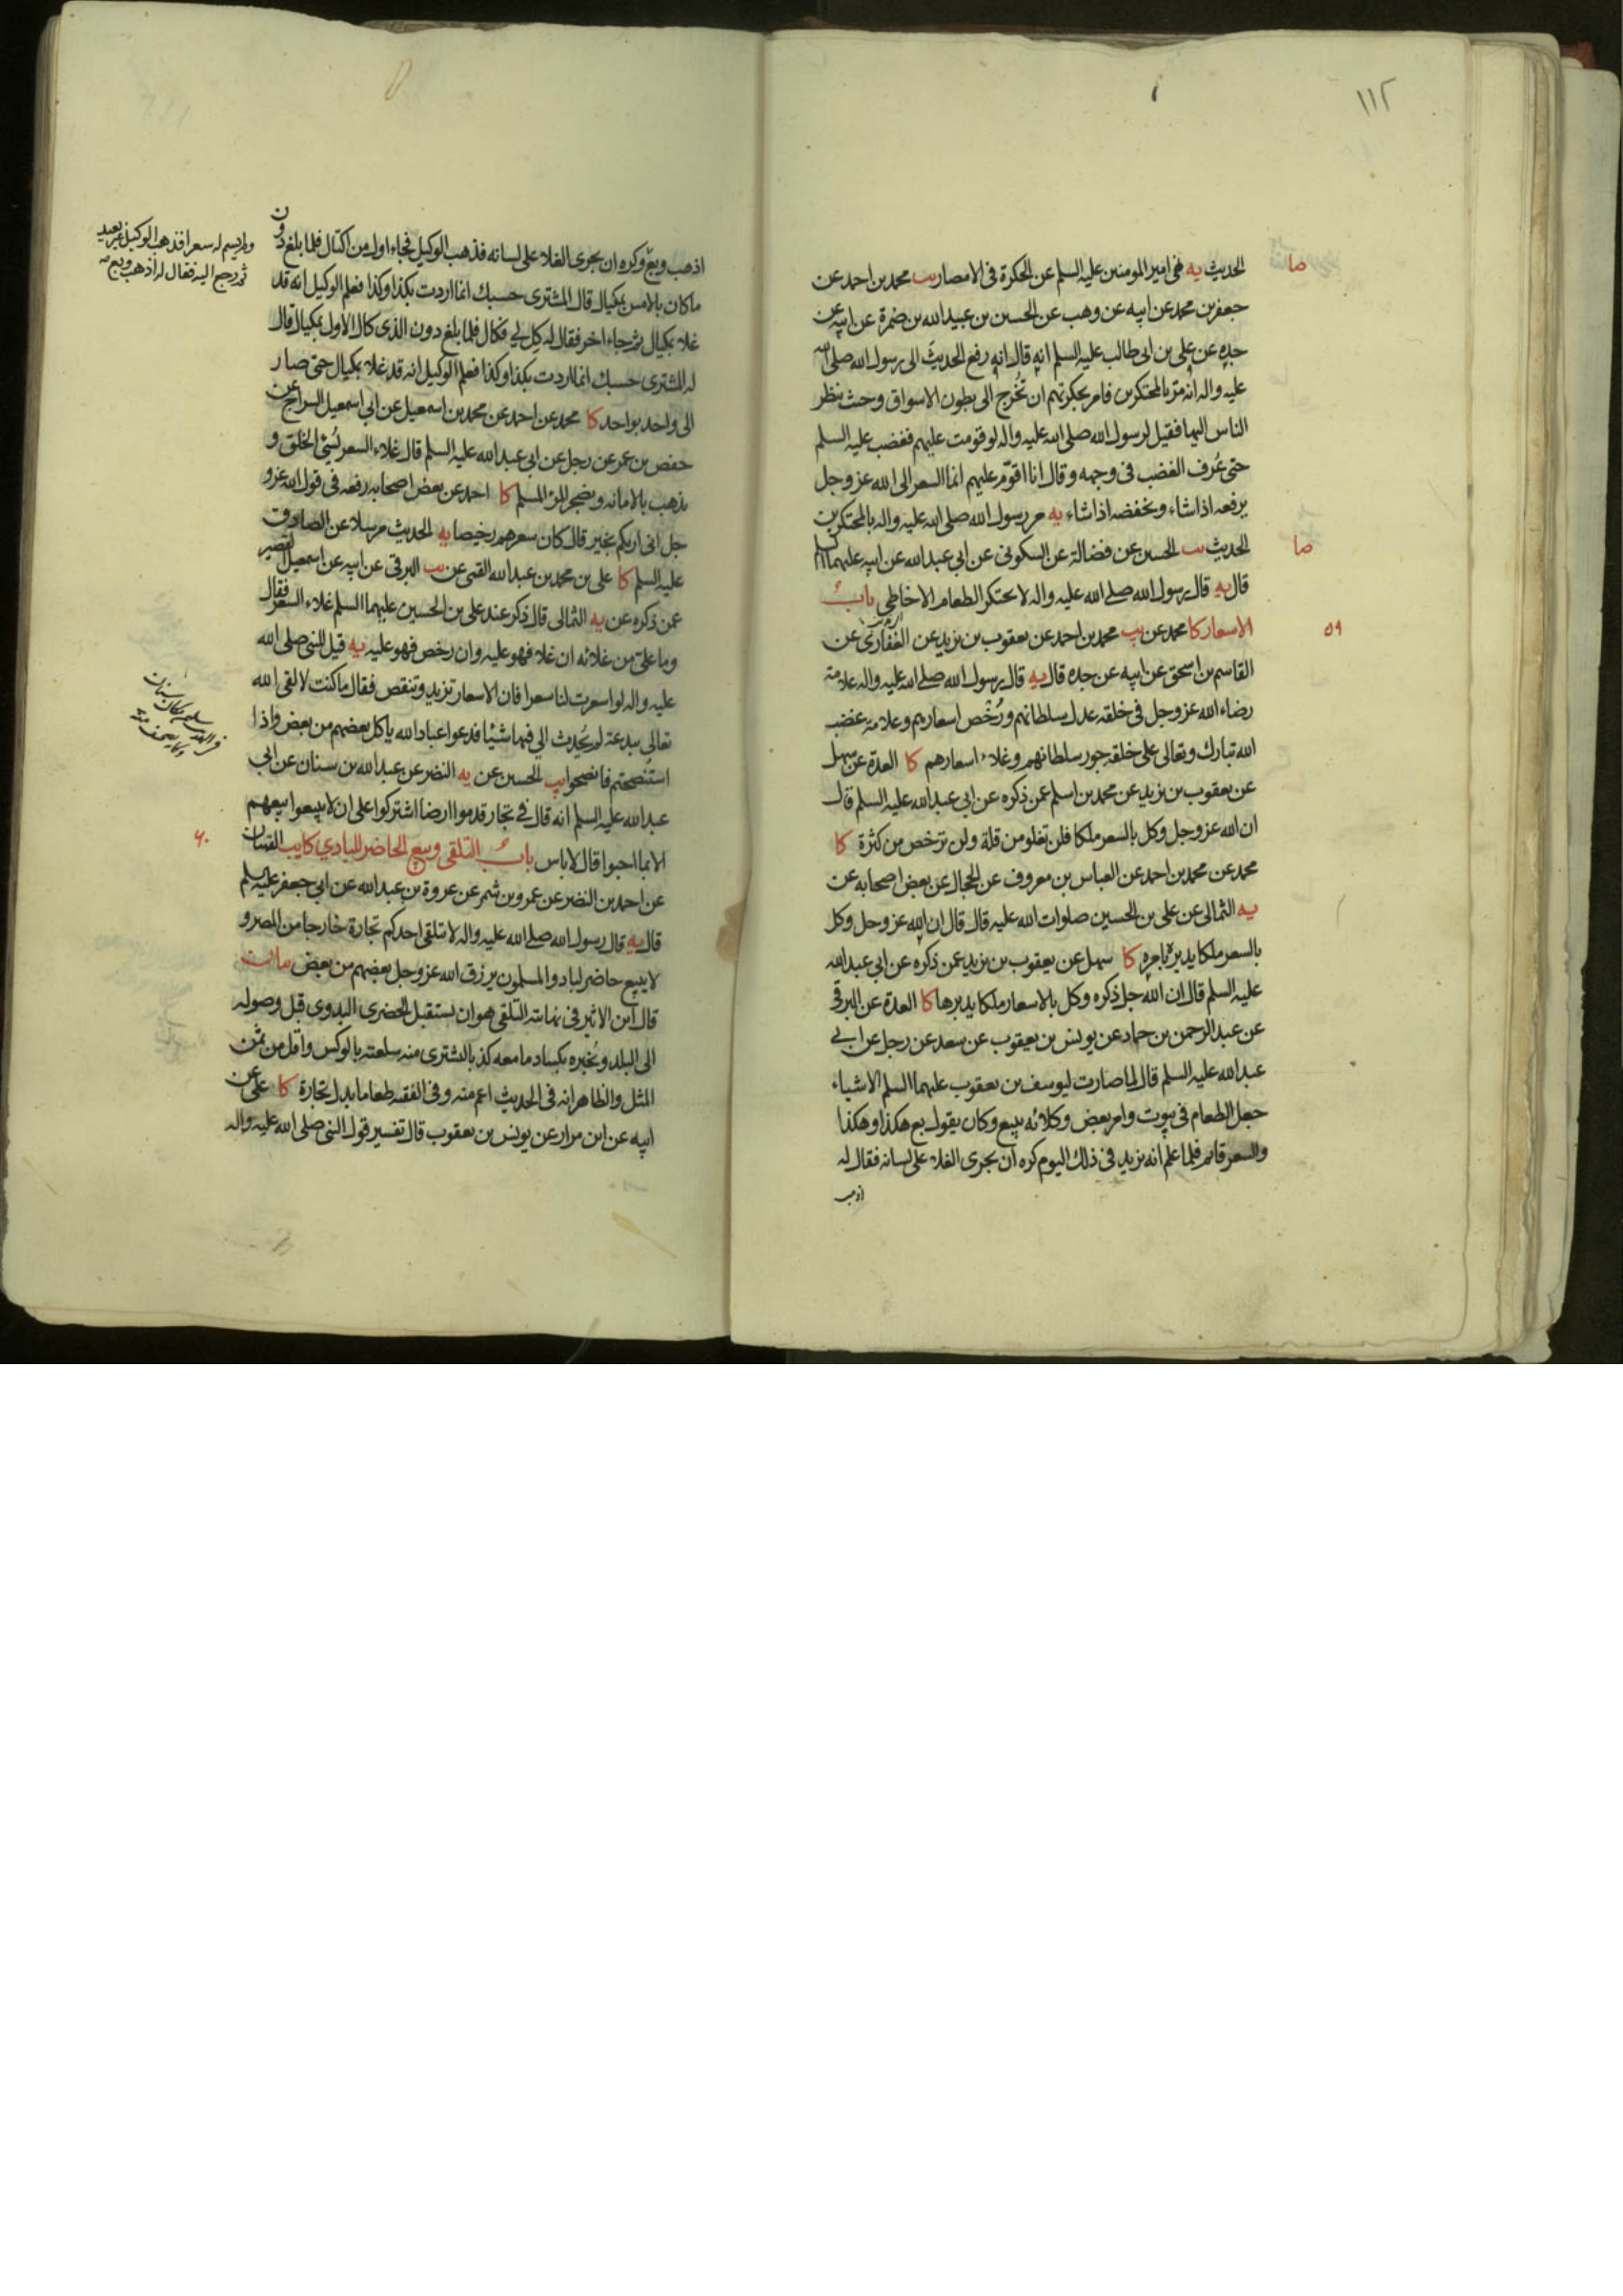 ١١٢
صا
الحديث يه نهى امير المومنين عليه السلم عن الحكرة فى الامصار يب محمد بن احمد عن
جعفر بن محمد عن ابيه عن وهب عن الحسين بن عبيد الله بن ضمرة عن ابيه عن
جده عن على بن ابى طالب عليه السلم انه قال انه رفع الحديث الى رسول الله صلى الله
عليه واله انه مر بالمحتكرين فامر بحكرتهم ان تُخرج الى بطون الاسواق وحيث ينظر
الناس اليها فقيل لرسول الله صلى الله عليه واله لو قومت عليهم فغضب عليه السلم
حتى عُرف الغضب فى وجهه وقال انا اقوّم عليهم انما السعر الى الله عز وجل
يرفعه اذا شاء ويخفضه اذا شاء يه مر رسول الله صلى الله عليه واله بالمحتكرين
صا
الحديث يب الحسين عن فضالة عن السكونى عن ابي عبد الله عن ابيه عليهما السلم
قال يه قال رسول الله صلى الله عليه واله لا يحتكر الطعام الا خاطئ باب
٥٩
الاسعار كا محمد عن يب محمد بن احمد عن يعقوب بن يزيد عن الغفارى عن
القاسم بن اسحق عن ابيه عن جده قال يه قال رسول الله صلى الله عليه واله علامة
رضاء الله عز وجل فى خلقه عدل سلطانهم ورُخص اسعارهم وعلامة غضب
الله تبارك وتعالى على خلقه جور سلطانهم وغلاء اسعارهم كا العدة عن سهل
عن يعقوب بن يزيد عن محمد بن اسلم عمن ذكره عن ابي عبد الله عليه السلم قال
ان الله عز وجل وكل بالسعر ملكا فلن تغلو من قلة ولن ترخص من كثرة كا
محمد عن محمد بن احمد عن العباس بن معروف عن الحجال عن بعض اصحابه عن
يه الثمالى عن على بن الحسين صلوات الله عليه قال قال ان الله عز وجل وكل
بالسعر ملكا يدبره بامره كا سهل عن يعقوب بن يزيد عمن ذكره عن ابي عبد الله
عليه السلم قال ان الله جل ذكره وكل بالاسعار ملكا يدبرها كا العدة عن البرقى
عن عبد الرحمن بن حماد عن يونس بن يعقوب عن سعد عن رجل عن ابي
عبد الله عليه السلم قال لما صارت ليوسف بن يعقوب عليهما السلم الاشياء
جعل الطعام فى بيوت وامر بعض وكلائه يبيع وكان يقول بع هكذا وهكذا
والسعر قائم فلما علم انه يزيد فى ذلك اليوم كره ان يجرى الغلاء على لسانه فقال له
اذهب
اذهب وبع وكره ان يجرى الغلاء على لسانه فذهب الوكيل فجاء اول من اكتال فلما بلغ دون
ولم يسم له سعرا فذهب الوكيل غير بعيد
ثم رجع اليه فقال له اذهب وبع
ما كان بالامس بمكيال قال المشترى حسبك انما اردت بكذا وكذا فعلم الوكيل انه قد
غلا بمكيال ثم جاء اخر فقال له كل لي فكال فلما بلغ دون الذى كال الاول بمكيال قال
له المشترى حسبك انما اردت بكذا وكذا فعلم الوكيل انه قد غلا بمكيال حتى صار
الى واحد بواحد كا محمد عن احمد عن محمد بن اسمعيل عن ابي اسمعيل السراج عن
حفص بن عمر عن رجل عن ابي عبد الله عليه السلم قال غلاء السعر يُسئ الخلق و
يذهب بالامانه ويضجر المرء المسلم كا احمد عن بعض اصحابه رفعه فى قول الله عز و
جل انى اريكم بخير قال كان سعرهم رخيصا يه الحديث مرسلا عن الصادق
عليه السلم كا على بن محمد بن عبد الله القمى عن يب البرقى عن ابيه عن اسمعيل القصير
عمن ذكره عن يه الثمالى قال ذكر عند على بن الحسين عليهما السلم غلاء السعر فقال
وما علىّ من غلائه ان غلا فهو عليه وان رخص فهو عليه يه قيل للنبى صلى الله
عليه واله لو اسعرت لنا سعرا فان الاسعار تزيد وتنقص فقال ما كنت لالقى الله
تعالى ببدعة لم يُحدث الي فيها شيئا فدعوا عباد الله ياكل بعضهم من بعض واذا
استنصحتم فانصحوا يب الحسين عن يه النضر عن عبد الله بن سنان عن ابي
عبد الله عليه السلم انه قال فى تجار قدموا ارضا اشتركوا على ان لا يبيعوا بيعهم
الا بما احبوا قال لا باس باب التلقى وبيع الحاضر للبادي كا يب القميان
٦٠
عن احمد بن النضر عن عمرو بن شمر عن عروة بن عبد الله عن ابي جعفر عليه السلم
قال يه قال رسول الله صلى الله عليه واله لا يتلقى احدكم تجارة خارجا من المصر و
لا يبيع حاضر لباد والمسلمون يرزق الله عز وجل بعضهم من بعض بيان
قال ابن الاثير فى نهايته التلقى هو ان يستقبل الحضرى البدوى قبل وصوله
الى البلد ويُخبره بكساد ما معه كذبا ليشترى منه سلعته بالوكس واقل من ثمن
المثل والظاهر انه فى الحديث اعم منه وفى الفقيه طعاما بدل تجارة كا على عن
ابيه عن ابن مرار عن يونس بن يعقوب قال تفسير قول النبى صلى الله عليه واله